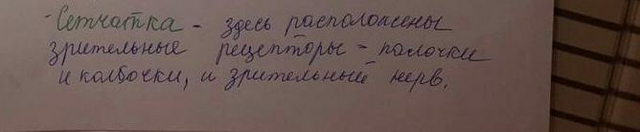 - Сетчатка - здесь расположены
зрительные рецепторы - палочки
и колбочки, и зрительный нерв.